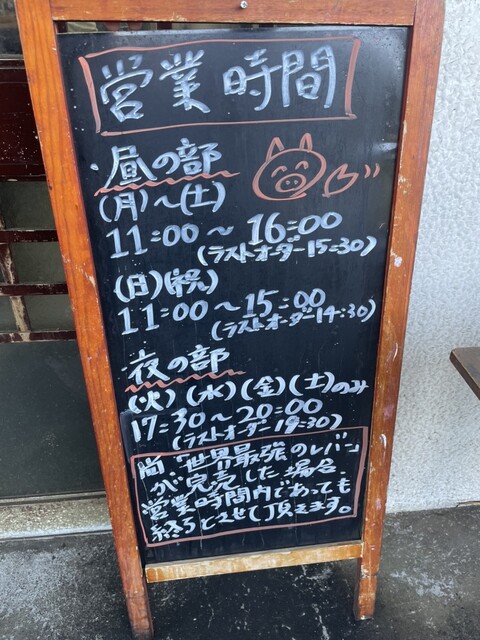 営業時間
・昼の部
(月)～(土)
11:00～16:00
(ラストオーダー15:30)
(日)(祝)
11:00～15:00
(ラストオーダー14:30)
夜の部
(火)(水)(金)(土)のみ
17:30～20:00
(ラストオーダー19:30)
尚「世界最強のレバー」
が完売した場合、
営業時間内であっても
終了とさせて頂きます。